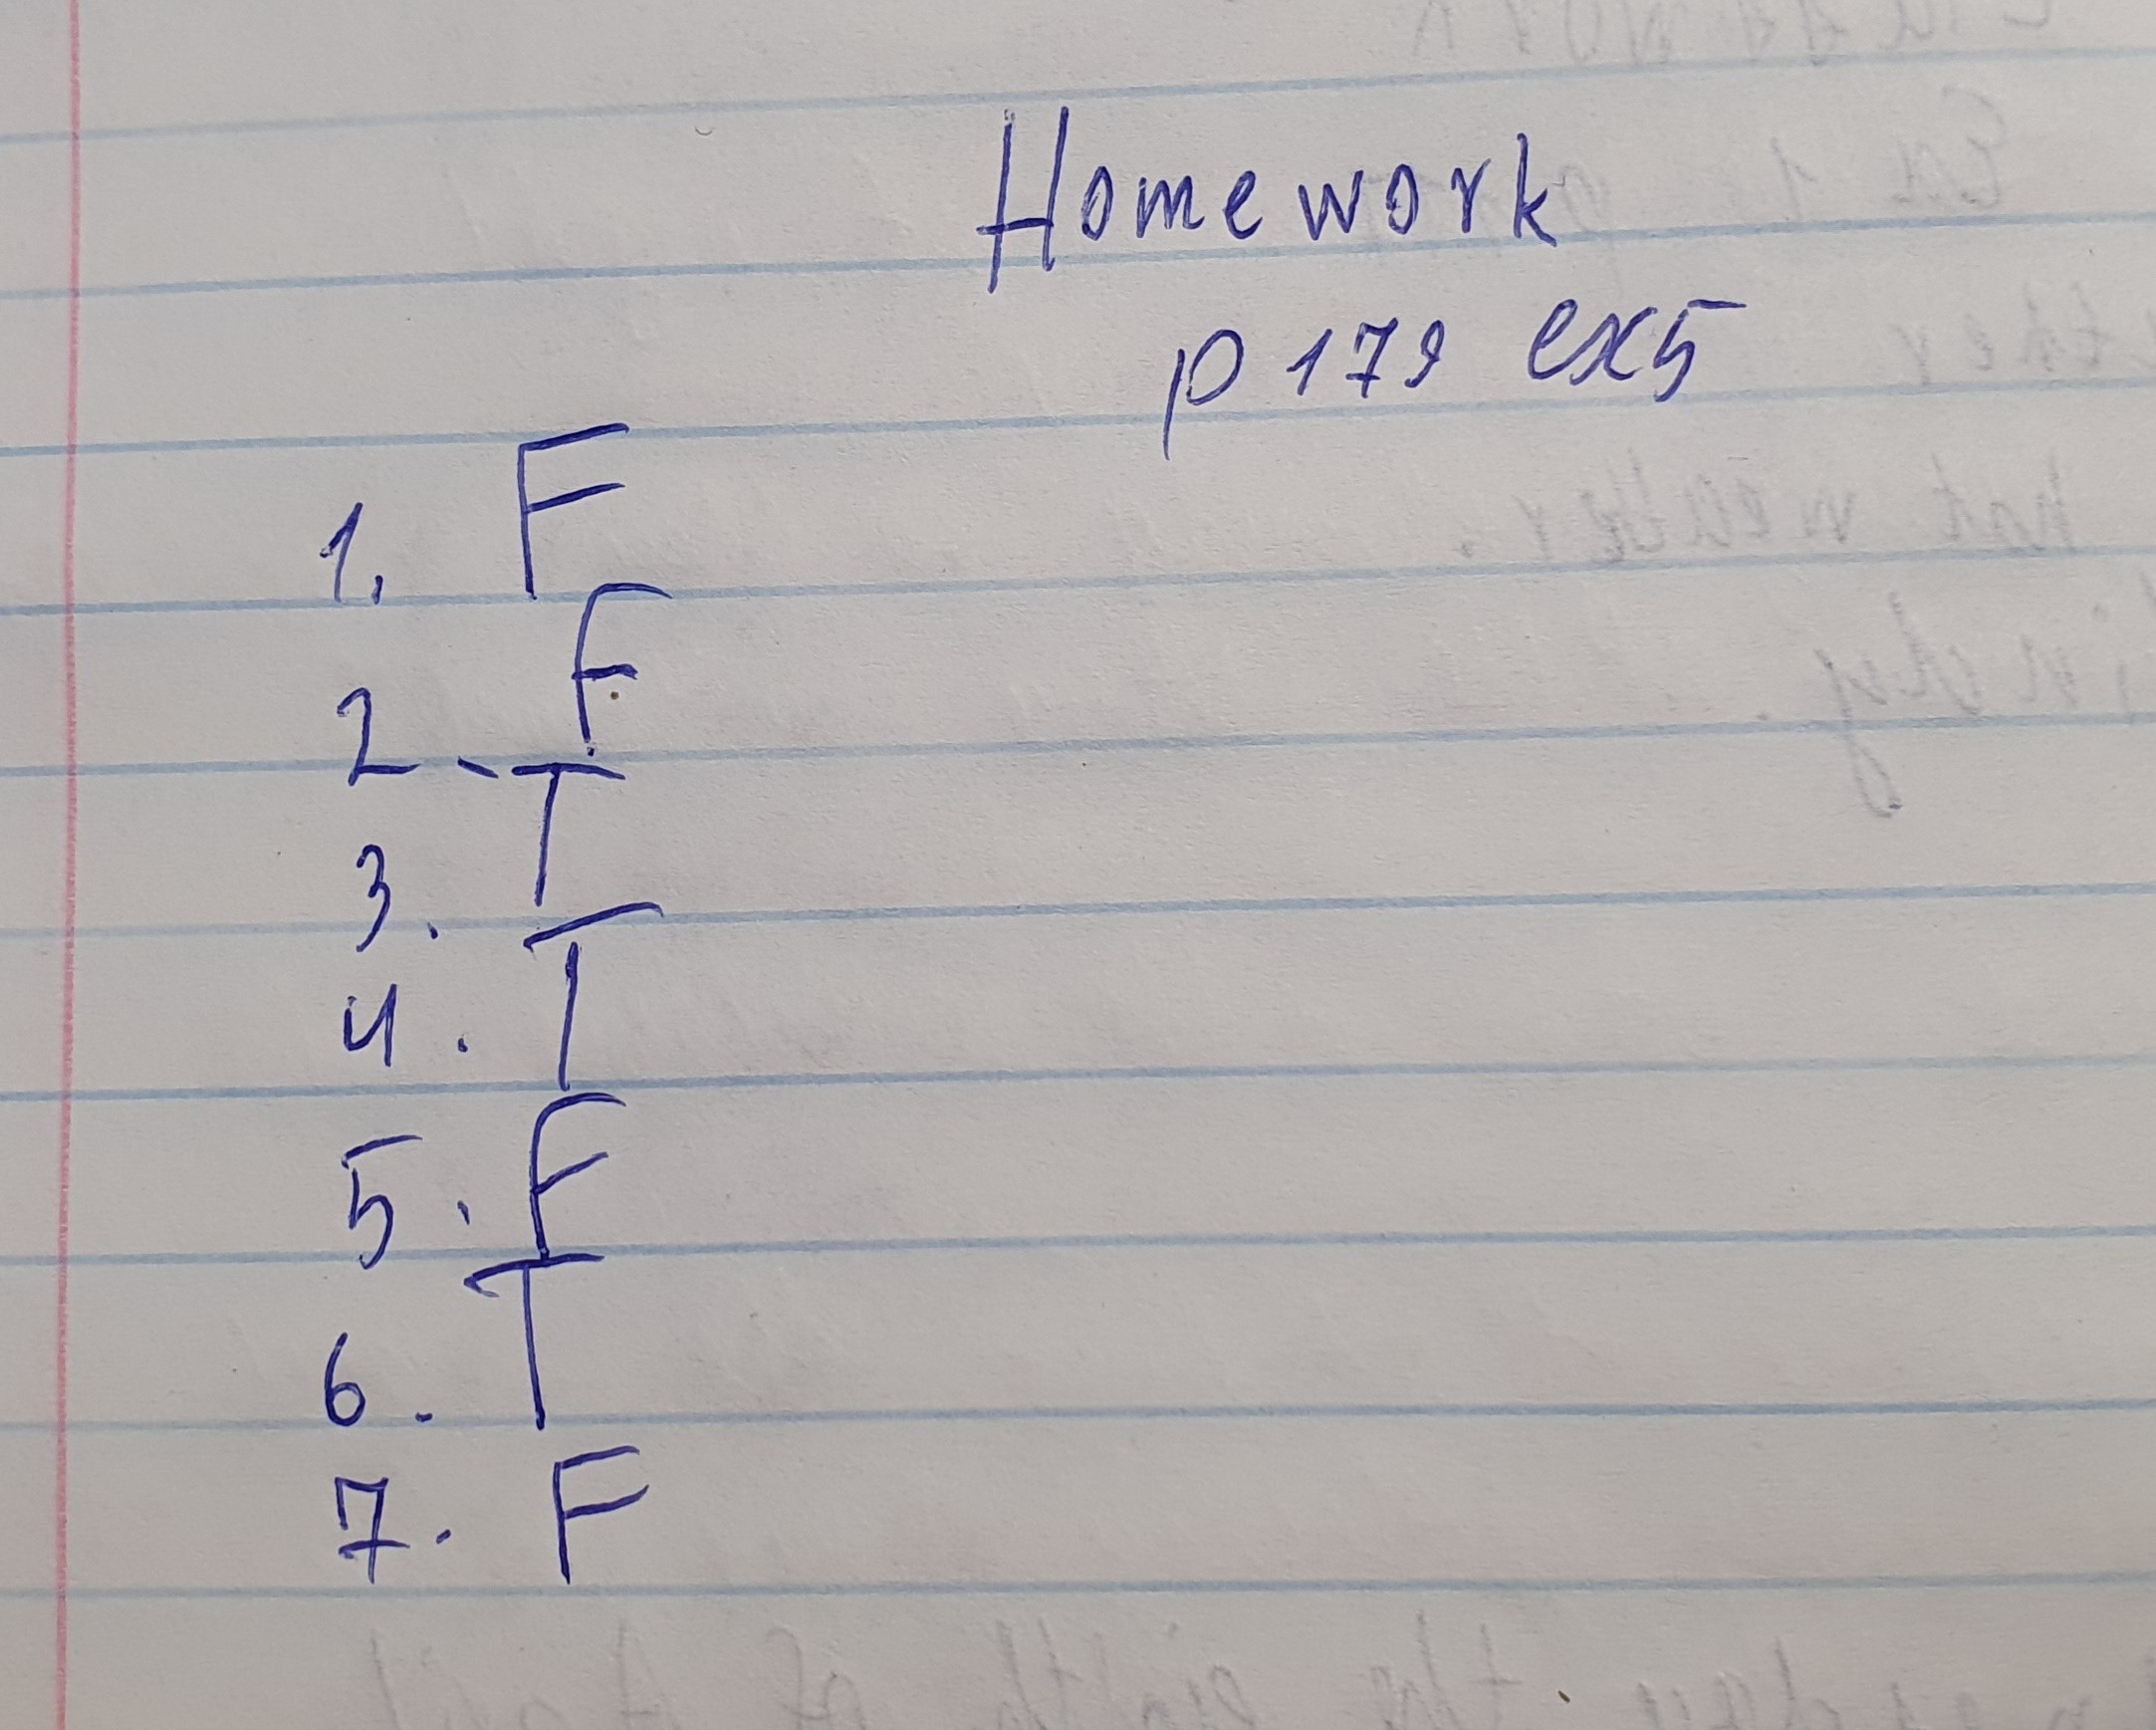 Homework
p 179 ex5
1. F
2. F
3. T
4. T
5. F
6. T
7. F